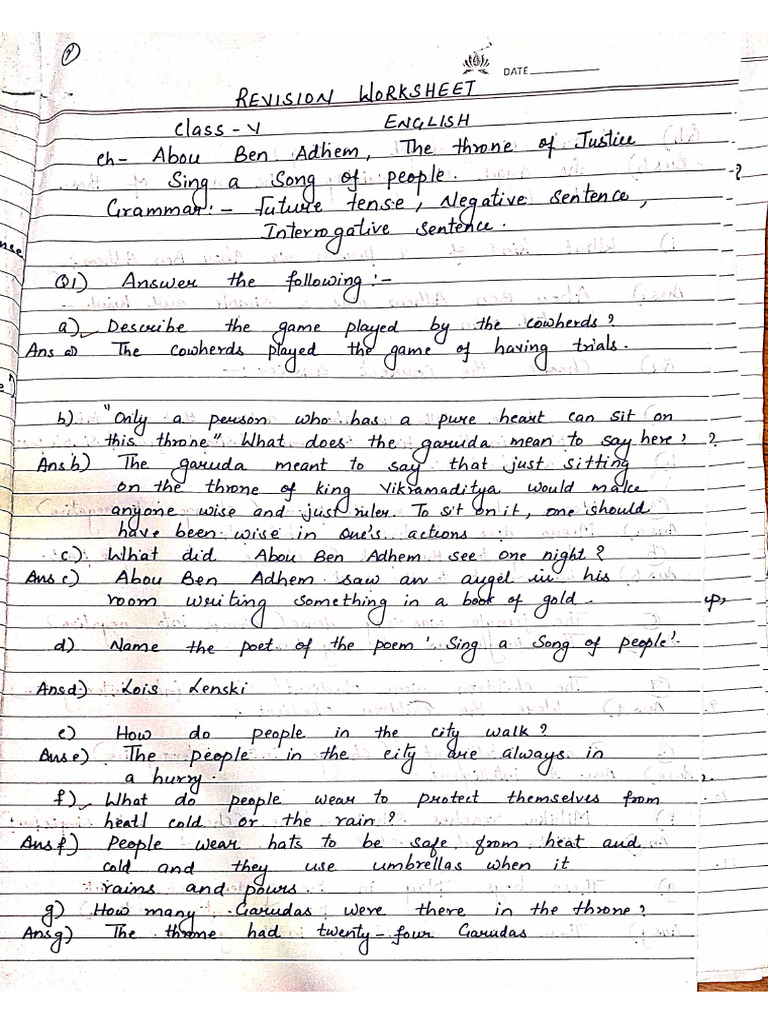 2
DATE
REVISION WORKSHEET
Class - V ENGLISH
ch- Abou Ben Adhem, The throne of Justice
Sing a Song of people.
Grammar:- Future tense, Negative sentence,
Interrogative sentence.
Q1) Answer the following :-
a) Describe the game played by the cowherds?
Ans a) The cowherds played the game of having trials.
b) "Only a person who has a pure heart can sit on
this throne". What does the garuda mean to say here?
Ans b) The garuda meant to say that just sitting
on the throne of king Vikramaditya would make
anyone wise and just ruler. To sit on it, one should
have been wise in one's actions.
c) What did Abou Ben Adhem see one night?
Ans c) Abou Ben Adhem saw an angel in his
room writing something in a book of gold.
d) Name the poet of the poem 'Sing a Song of people'.
Ans d) Lois Lenski
e) How do people in the city walk?
Ans e) The people in the city are always in
a hurry.
f) What do people wear to protect themselves from
heat/ cold or the rain?
Ans f) People wear hats to be safe from heat and
cold and they use umbrellas when it
rains and pours.
g) How many Garudas were there in the throne?
Ans g) The throne had twenty-four Garudas